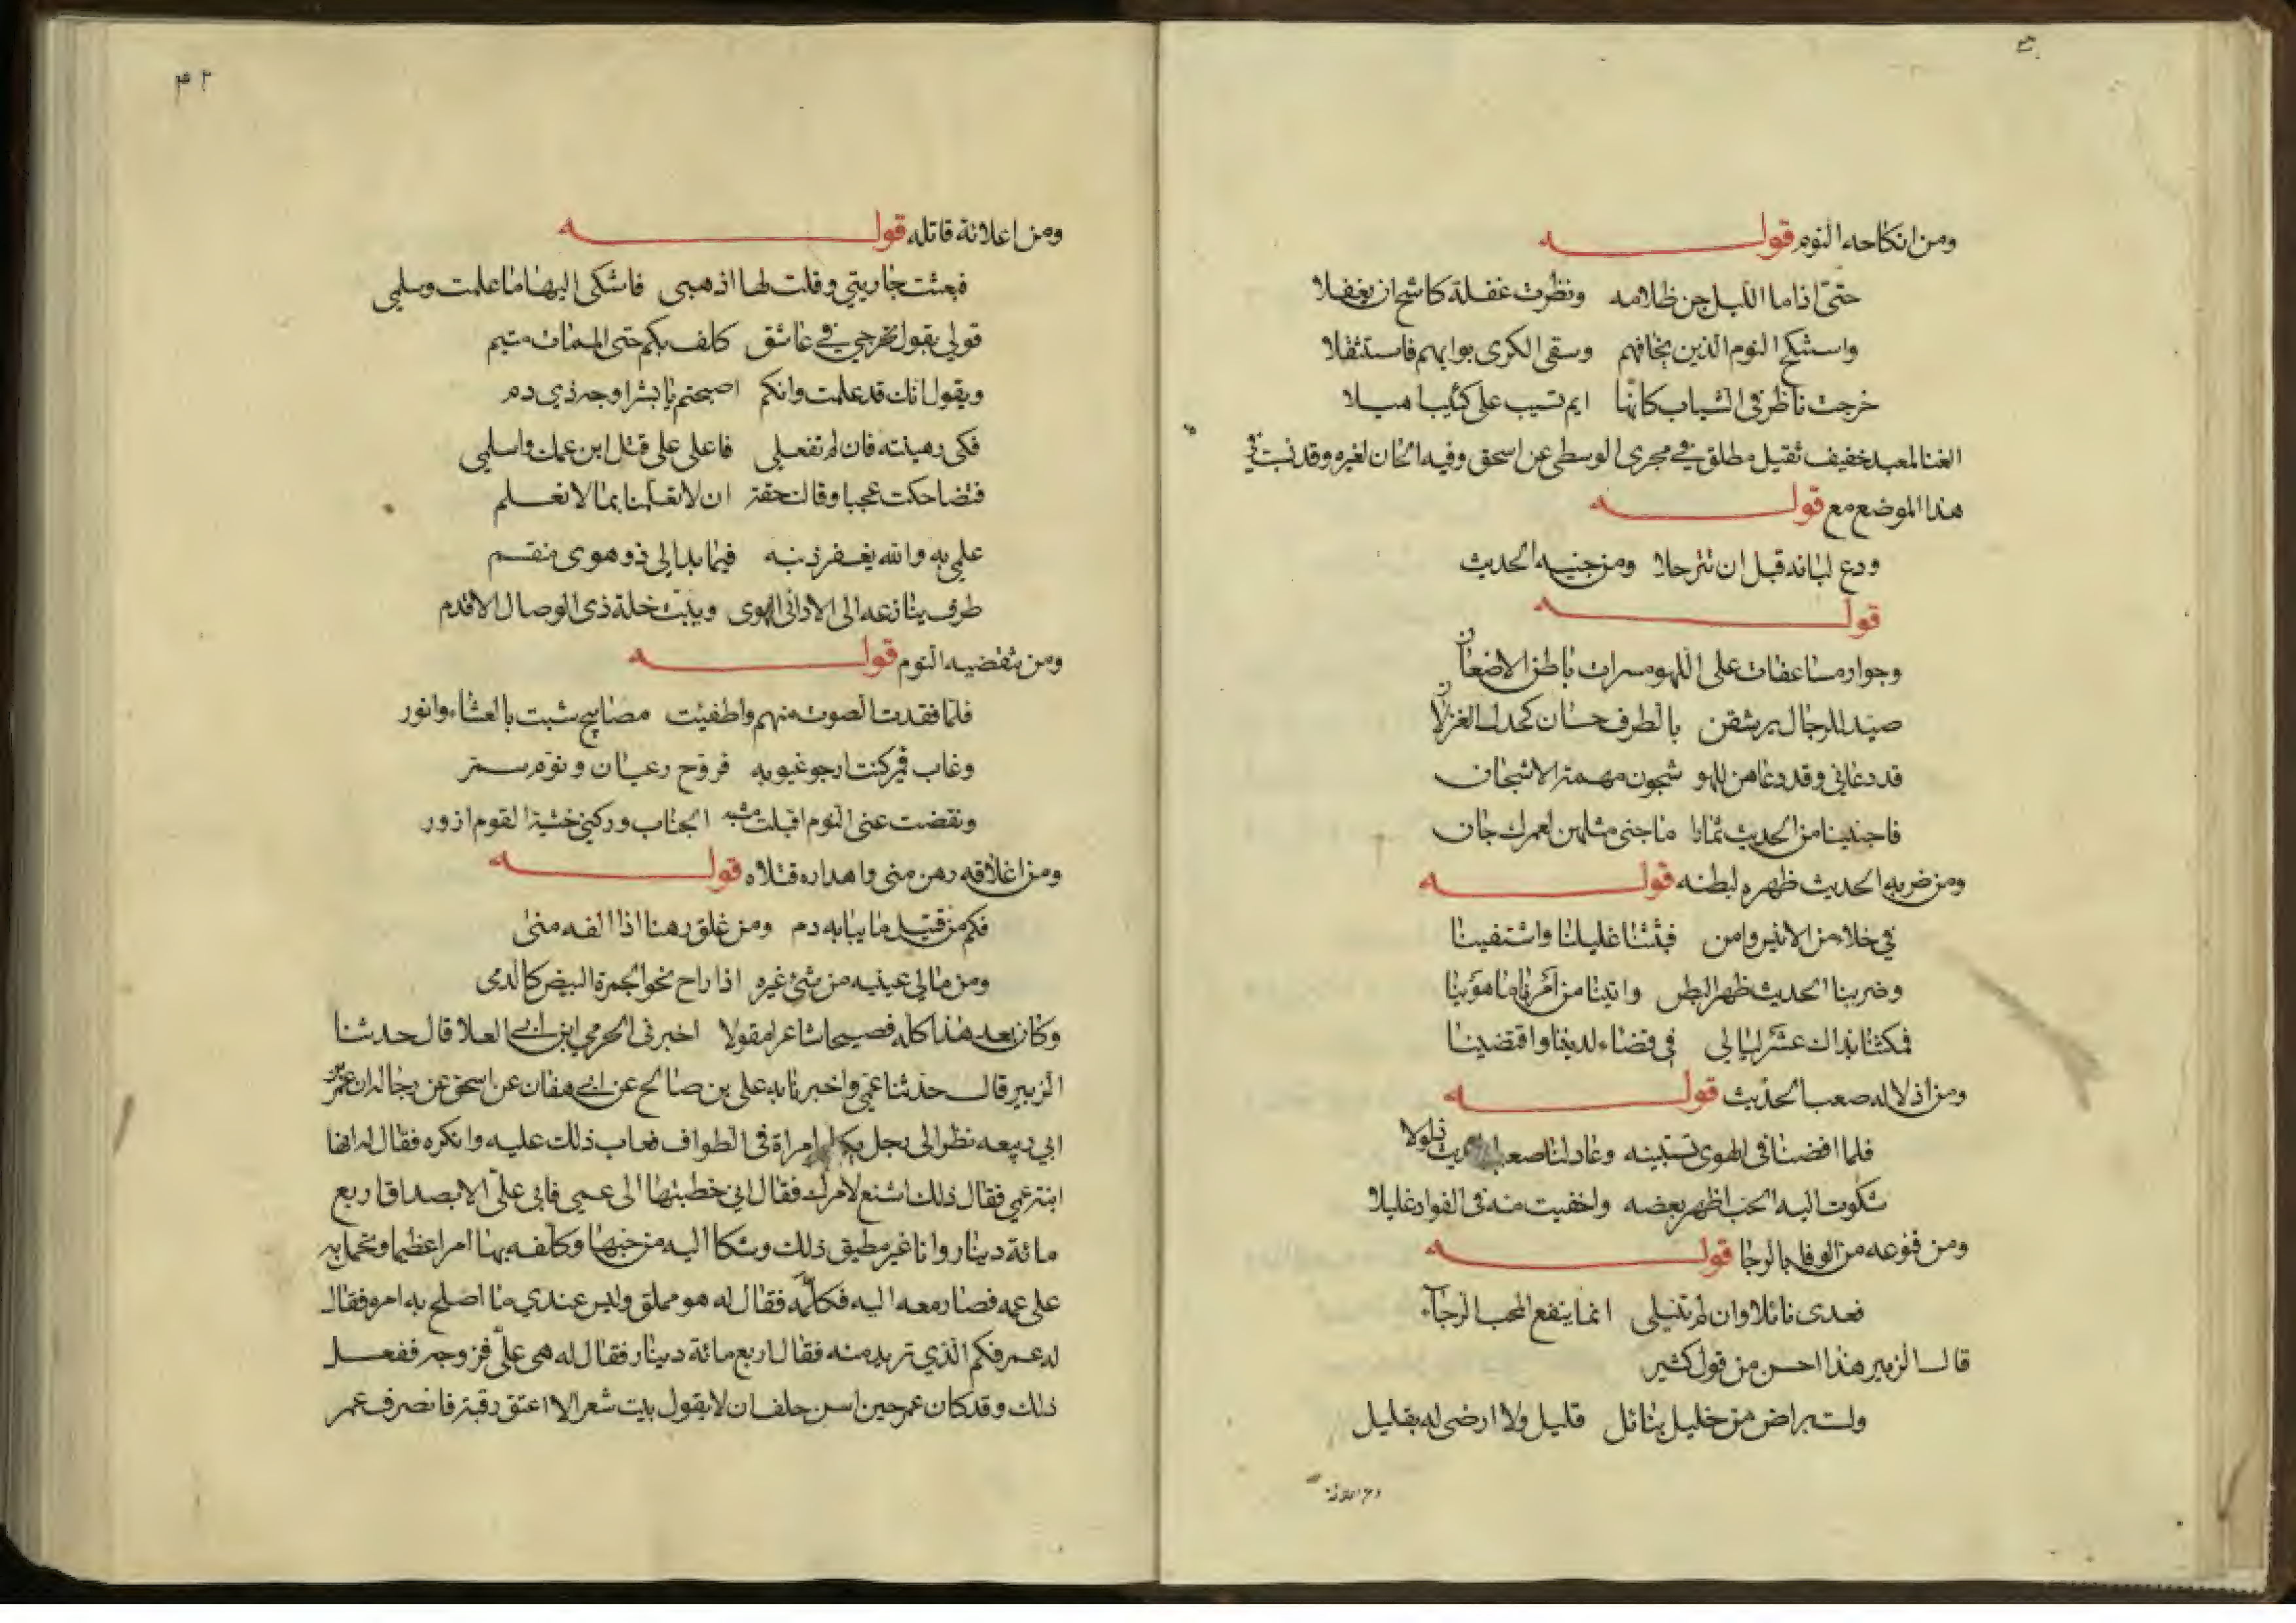 ومن انكاحه النوم قوله
حتى اذا ما الليل جن ظلامه ونظرت غفلة كاشح ان يغفلا
واستنكح النوم الذين نخافهم وسقى الكرى بوابهم فاستثقلا
خرجت تأطر في الثياب كأنها ايم تسيب على كثيبا هيلا
الغنا لمعبد خفيف ثقيل مطلق في مجرى الوسطى عن اسحق وفيه الحان لغيره وقد نسبت في
هذا الموضع مع قوله
ودع لبانه قبل ان تترحلا ومن جنيه الحديث
قوله
وجوار مساعفات على اللهو مسرات باطن الاضغان
صيد للرجال يرشقن بالطرف حسان كخدل الغزلان
قد دعاني وقد دعاهن للهو شجون مهمة الاشجان
فاجتنينا من الحديث ثمارا ما جنى مثلهن لعمرك جان
ومن ضربه الحديث ظهره لبطنه قوله
في خلاء من الانيس وامن فبثثنا غليلنا واشتفينا
وضربنا الحديث ظهرا لبطن واتينا من امرنا ما هوينا
فمكثنا بذاك عشر ليالي في قضاء لديننا واقتضينا
ومن اذلاله صعب الحديث قوله
فلما افضنا في الهوى نستبينه وعاد لنا صعب الحديث ذلولا
شكوت اليه الحب اظهر بعضه واخفيت منه في الفواد غليلا
ومن قنوعه من الوفا بالرجا قوله
فعدى نائلا وان لم تنيلي انما ينفع المحب الرجاء
قال الزبير هذا احسن من قول كثير
ولست براض من خليل بنائل قليل ولا ارضى له بقليل
ومن اعلائة
٤٢
ومن اعلائة قاتله قوله
فبعثت جاريتي وقلت لها اذهبى فاشكى اليها ما علمت وسلمي
قولي يقول تحرجي في عاشق كلف بكم حتى الممات متيم
ويقول انك قد علمت وانكم اصبحتم يا بشر اوجه ذي دم
فكى رهينته فان لم تفعلي فاعلى على قتل ابن عمك واسلمي
فتضاحكت عجبا وقالت حقه ان لا يعلمنا بما لا نعلم
علمي به والله يغفر ذنبه فيما بدا لي ذو هوى متقسم
طرف ينازعه الى الادانى الهوى ويبت خلة ذى الوصال الاقدم
ومن تنقضيه النوم قوله
فلما فقدت الصوت منهم واطفيت مصابيح شبت بالعشاء وانور
وغاب قمير كنت ارجو غيوبه فروح رعيان ونوم سمر
ونقضت عنى النوم اقبلت مشيه الحباب وركني خشية القوم ازور
ومن اغلاقه رهن منى واهداره قتلاه قوله
فكم من قتيل ما يبا به دم ومن غلق رهنا اذا الفه منى
ومن مالي عينيه من شئ غيره اذا راح نحو الجمرة البيض كالدمى
وكان بعد هذا كله فصيحا شاعرا مقولا اخبرنى الحرمي ابن ابي العلا قال حدثنا
الزبير قال حدثنا عمي واخبرنا به علي بن صالح عن ابي هفان عن اسحق عن رجاله ان عمر بن
ابي ربيعه نظر الى رجل يكلم امراة في الطواف فعاب ذلك عليه وانكره فقال له انها
ابنة عمي فقال ذلك اشنع لامرك فقال اني خطبتها الى عمي فابى علي الا بصداق اربع
مائة دينار وانا غير مطيق ذلك وشكا اليه من حبها وكلفه بها امرا عظيما وتحمل به
على عمه فصار معه اليه فكلمه فقال له هو مملق وليس عندي ما اصلح به امره فقال
له عمر فكم الذي تريد منه فقال اربع مائة دينار فقال له هي علي فزوجه ففعل
ذلك وقد كان عمر حين اسن حلف ان لا يقول بيت شعر الا اعتق رقبة فانصرف عمر